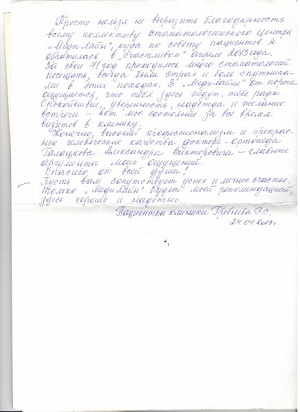 Просто нельзя не выразить благодарность
всему коллективу стоматологического центра
„МедиЛайн", куда по совету пациентов я
обратилась в "счастливом" апреле 2013 года.
За свои 71 год приходилось много стоматологий
посещать, всегда были страх и боль спутника-
ми в этих походах. В „Медилайне" от порога
ощущается, что тебя здесь ждут, тебе рады.
Спокойствие, уверенность, надежда и желание
встречи – вот мое состояние за все время
визитов в клинику.
Конечно, высокий профессионализм и прекрас-
ные человеческие качества доктора-ортопеда
Александра Викторовича – главные
аргументы моих ощущений.
Спасибо от всей души!
Пусть вам сопутствует успех и личное счастье.
Только „МедиЛайн" будет моей рекомендацией,
здесь хорошо и надежно.
Пациентка клиники
24.04.2013г.